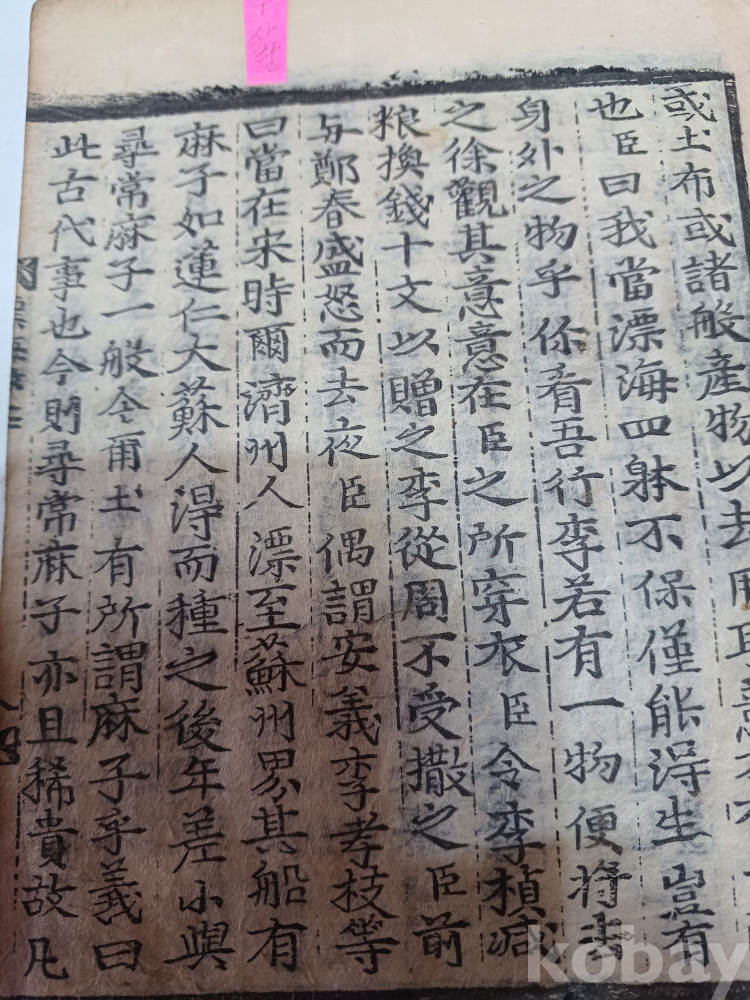 사랑
或土布或諸般産物以去用
也臣曰我當漂海四躰不保僅能淂生豈有
身外之物乎你看吾行李若有一物便將去
之徐觀其意意在臣之所穿衣臣令李楨减
粮換錢十文以贈之李從周不受撒之臣前
与鄭春盛怒而去夜臣偶謂安義李孝枝等
曰當在宋時爾濟州人漂至蘇州界其船有
麻子如蓮仁大蘇人淂而種之後年差小與
尋常麻子一般今爾土有所謂麻子乎義曰
此古代事也今則尋常麻子亦且稀貴故凡
kobay